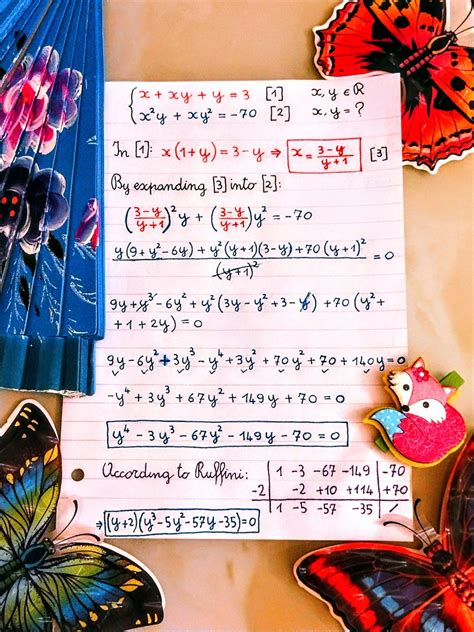 x + xy + y = 3 [1] x, y ∈ ℝ
x²y + xy² = -70 [2] x, y = ?
In [1]: x(1+y) = 3-y ⇒ x = (3-y)/(y+1) [3]
By expanding [3] into [2]:
((3-y)/(y+1))² y + ((3-y)/(y+1)) y² = -70
(y(9+y²-6y) + y²(y+1)(3-y) + 70(y+1)²)/(y+1)² = 0
9y + y³ - 6y² + y²(3y - y² + 3 - y) + 70(y² +
+ 1 + 2y) = 0
9y - 6y² + 3y³ - y⁴ + 3y² + 70y² + 70 + 140y = 0
-y⁴ + 3y³ + 67y² + 149y + 70 = 0
y⁴ - 3y³ - 67y² - 149y - 70 = 0
According to Ruffini:
1 -3 -67 -149 -70
-2 -2 +10 +114 +70
1 -5 -57 -35 /
⇒ (y+2)(y³-5y²-57y-35)=0